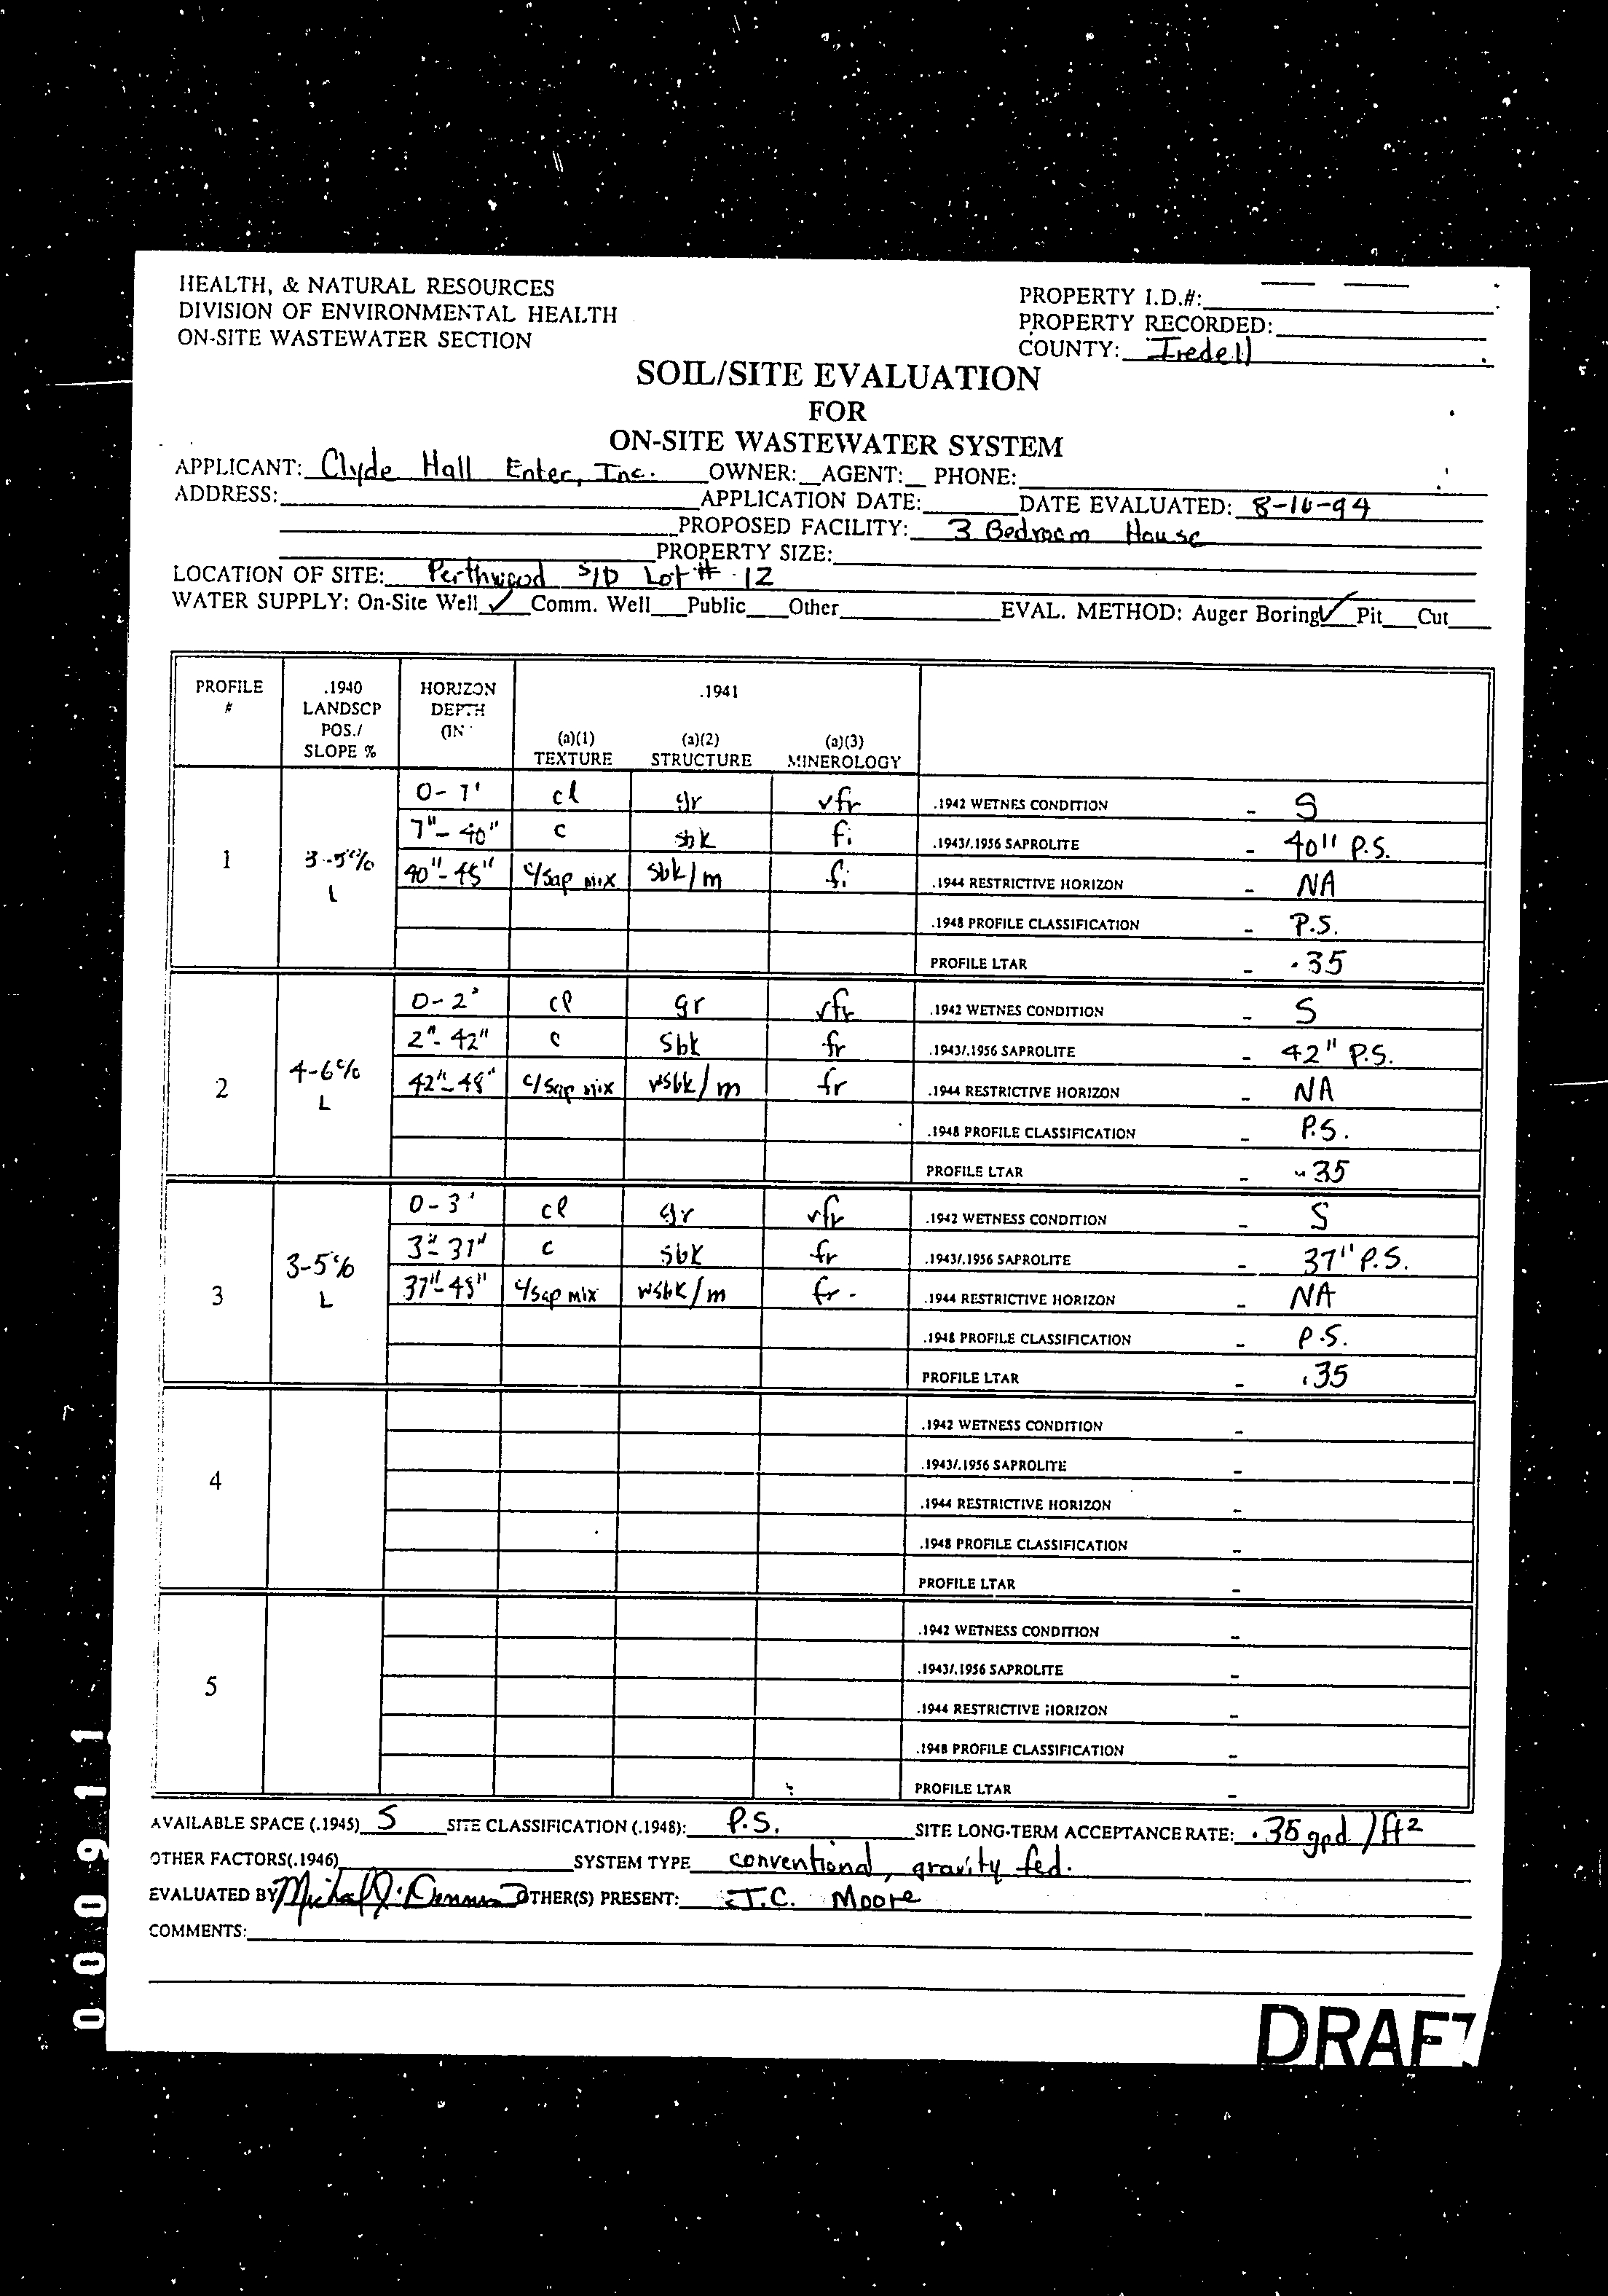 HEALTH, & NATURAL RESOURCES
DIVISION OF ENVIRONMENTAL HEALTH
ON-SITE WASTEWATER SECTION
PROPERTY I.D.#:
PROPERTY RECORDED:
COUNTY: Iredell
SOIL/SITE EVALUATION
FOR
ON-SITE WASTEWATER SYSTEM
APPLICANT: Clyde Hall Enter, Inc. OWNER:__AGENT:__ PHONE:
ADDRESS: APPLICATION DATE: DATE EVALUATED: 8-16-94
PROPOSED FACILITY: 3 Bedroom House
PROPERTY SIZE:
LOCATION OF SITE: Perthwood S/D Lot # 12
WATER SUPPLY: On-Site Well ✓ Comm. Well___Public___Other EVAL. METHOD: Auger Boring ✓ Pit___Cut___
PROFILE # .1940 LANDSCP POS./ SLOPE % HORIZON DEPTH (IN .1941 (a)(1) TEXTURE (a)(2) STRUCTURE (a)(3) MINEROLOGY
1 3-5% L
0-7" cl gr vfr .1942 WETNES CONDITION - S
7"-40" c sbk fi .1943/.1956 SAPROLITE - 40" P.S.
40"-48" c/sap mix sbk/m fi .1944 RESTRICTIVE HORIZON - NA
.1948 PROFILE CLASSIFICATION - P.S.
PROFILE LTAR - .35
2 4-6% L
0-2" cl gr vfr .1942 WETNES CONDITION - S
2"-42" c sbk fr .1943/.1956 SAPROLITE - 42" P.S.
42"-48" c/sap mix wsbk/m fr .1944 RESTRICTIVE HORIZON - NA
.1948 PROFILE CLASSIFICATION - P.S.
PROFILE LTAR - .35
3 3-5% L
0-3" cl gr vfr .1942 WETNESS CONDITION - S
3"-37" c sbk fr .1943/.1956 SAPROLITE - 37" P.S.
37"-48" c/sap mix wsbk/m fr .1944 RESTRICTIVE HORIZON - NA
.1948 PROFILE CLASSIFICATION - P.S.
PROFILE LTAR - .35
4
.1942 WETNESS CONDITION -
.1943/.1956 SAPROLITE -
.1944 RESTRICTIVE HORIZON -
.1948 PROFILE CLASSIFICATION -
PROFILE LTAR -
5
.1942 WETNESS CONDITION -
.1943/.1956 SAPROLITE -
.1944 RESTRICTIVE HORIZON -
.1948 PROFILE CLASSIFICATION -
PROFILE LTAR -
AVAILABLE SPACE (.1945) S SITE CLASSIFICATION (.1948): P.S. SITE LONG-TERM ACCEPTANCE RATE: .35 gpd/ft²
OTHER FACTORS(.1946) SYSTEM TYPE conventional, gravity fed.
EVALUATED BY OTHER(S) PRESENT: J.C. Moore
COMMENTS:
DRAFT
000911